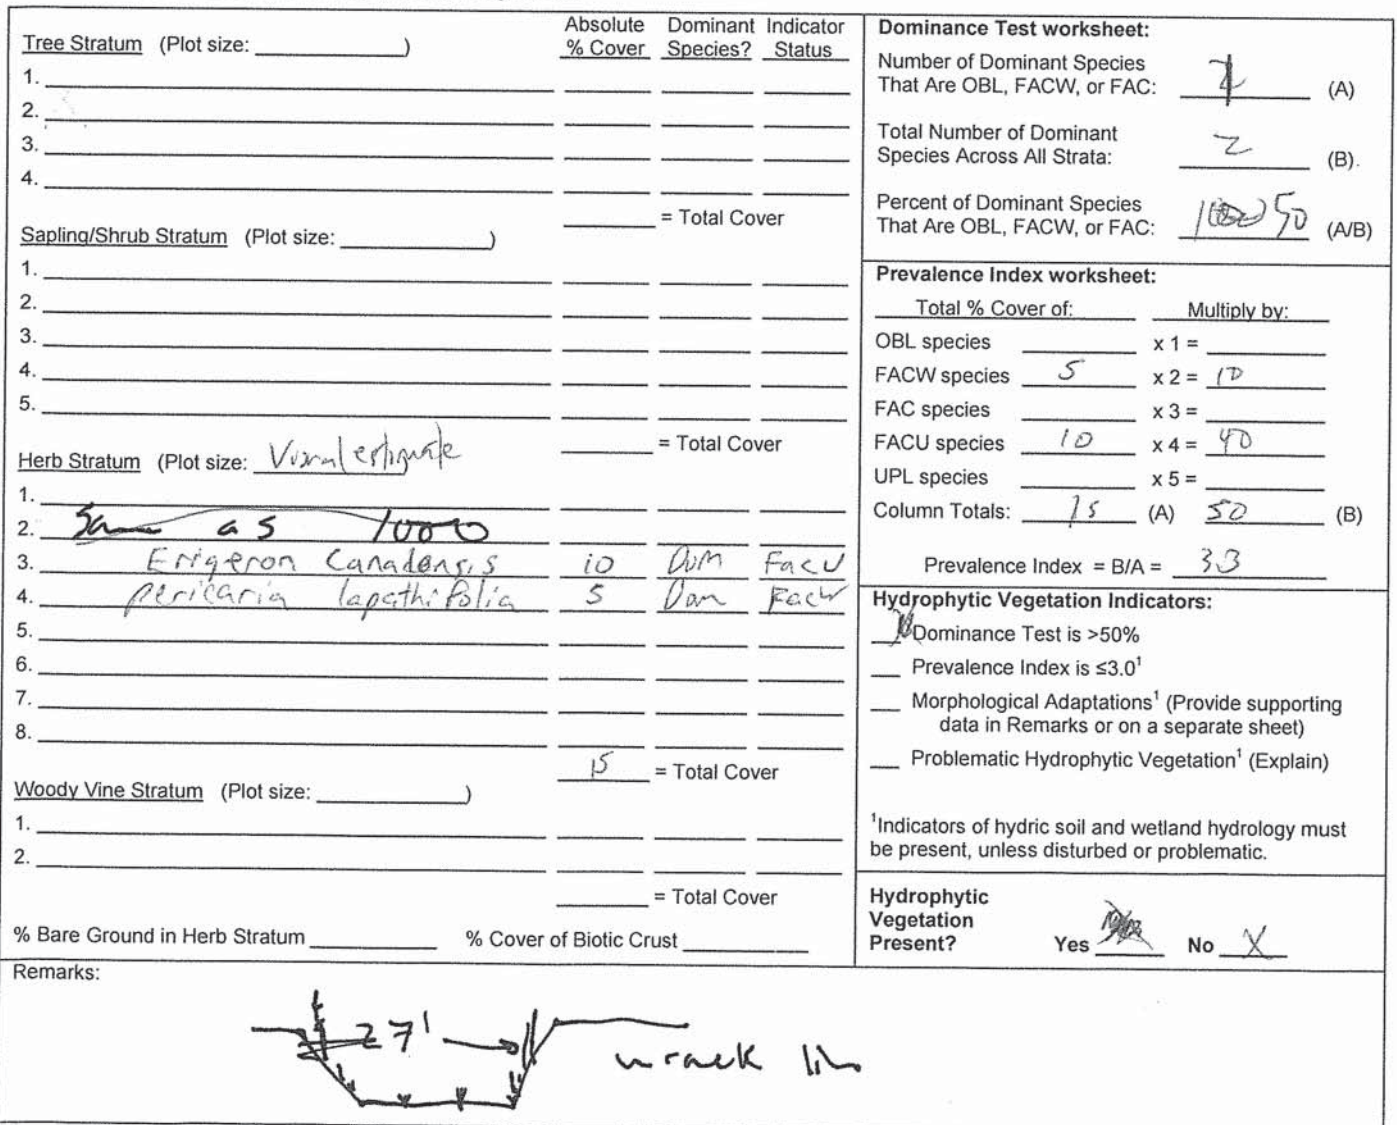 Absolute Dominant Indicator
Tree Stratum (Plot size: ____________) % Cover Species? Status
1.
2.
3.
4.
______ = Total Cover
Sapling/Shrub Stratum (Plot size: ____________)
1.
2.
3.
4.
5.
______ = Total Cover
Herb Stratum (Plot size: Visual estimate
1.
2. Same as 1000
3. Erigeron Canadensis 10 Dom FacU
4. pericaria lapathifolia 5 Dom FacW
5.
6.
7.
8.
15 = Total Cover
Woody Vine Stratum (Plot size: ____________)
1.
2.
______ = Total Cover
% Bare Ground in Herb Stratum ________ % Cover of Biotic Crust ________
Dominance Test worksheet:
Number of Dominant Species
That Are OBL, FACW, or FAC: 1 (A)
Total Number of Dominant
Species Across All Strata: 2 (B).
Percent of Dominant Species
That Are OBL, FACW, or FAC: 50 (A/B)
Prevalence Index worksheet:
Total % Cover of: Multiply by:
OBL species ______ x 1 = ______
FACW species 5 x 2 = 10
FAC species ______ x 3 = ______
FACU species 10 x 4 = 40
UPL species ______ x 5 = ______
Column Totals: 15 (A) 50 (B)
Prevalence Index = B/A = 3.3
Hydrophytic Vegetation Indicators:
Dominance Test is >50%
Prevalence Index is ≤3.0¹
Morphological Adaptations¹ (Provide supporting
data in Remarks or on a separate sheet)
Problematic Hydrophytic Vegetation¹ (Explain)
¹Indicators of hydric soil and wetland hydrology must
be present, unless disturbed or problematic.
Hydrophytic
Vegetation
Present? Yes ______ No X
Remarks:
27'
wrack line